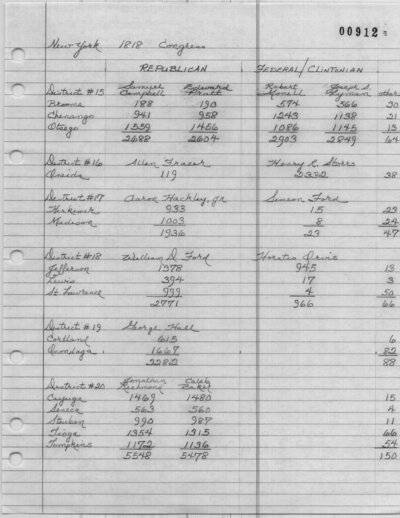 00912
New York 1818 Congress
REPUBLICAN FEDERAL/CLINTONIAN
Samuel Edward Robert Joseph S.
District #15 Campbell Pratt Monell Lyman others
Broome 188 190 574 566 30
Chenango 941 958 1243 1138 21
Otsego 1559 1456 1086 1145 13
2688 2604 2903 2849 64
District #16 Allen Fraser Henry R. Storrs
Oneida 119 2332 38
District #17 Aaron Hackley, Jr Simeon Ford
Herkemer 933 15 23
Madison 1003 8 24
1936 23 47
District #18 William D. Ford Horatio Orvis
Jefferson 1378 945 13
Lewis 394 17 3
St. Lawrence 999 4 50
2771 966 66
District #19 George Hall
Cortland 615 6
Onondaga 1667 82
2282 88
Jonathan Caleb
District #20 Richmond Baker
Cayuga 1469 1480 15
Seneca 563 560 4
Steuben 990 987 11
Tioga 1354 1315 66
Tompkins 1172 1136 54
5548 5478 150